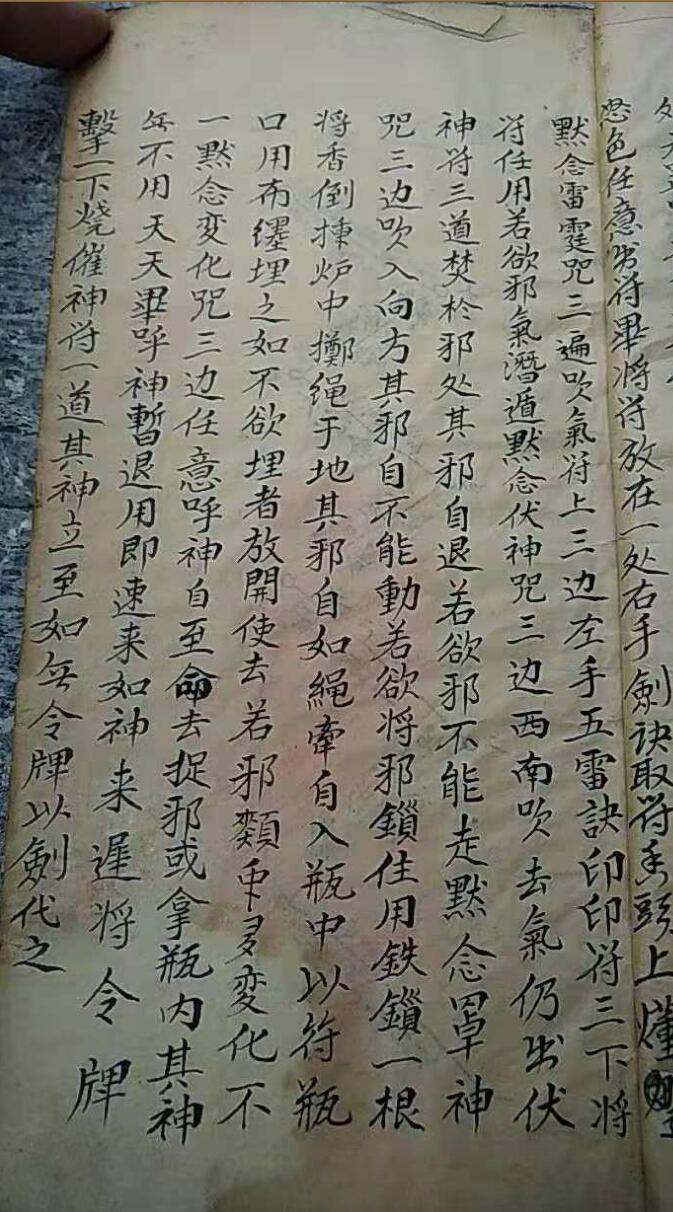 怒色任意出符畢将符放在一处右手劍诀取符香頭上燻
默念雷霆咒三遍吹氣符上三边左手五雷訣印印符三下将
符任用若欲邪氣潛遁默念伏神咒三边西南吹去氣仍出伏
神符三道焚於邪处其邪自退若欲邪不能走默念罩神
咒三边吹入向方其邪自不能動若欲将邪鎖住用鉄鎖一根
将香倒揀炉中擲绳于地其邪自如繩牽自入瓶中以符瓶
口用布缠埋之如不欲埋者放開使去若邪類重多変化不
一默念変化咒三边任意呼神自至命去捉邪或拿瓶内其神
無不用天天畢呼神暫退用即速来如神来遲将令牌
擊一下烧催神符一道其神立至如無令牌以劍代之